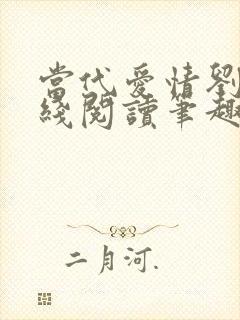 當代愛情劉
綫閱讀筆趣
二月河.